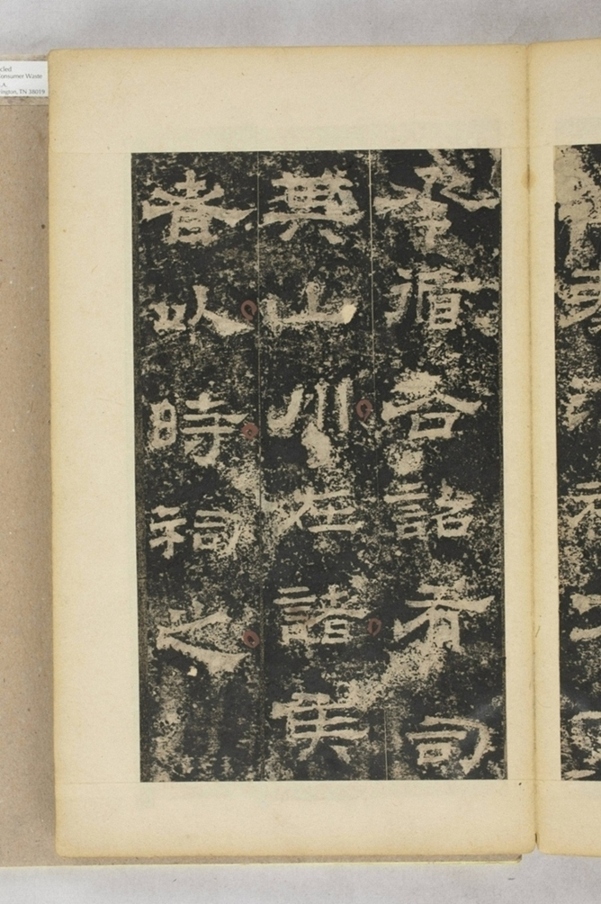 cled
onsumer Waste
.A
ington, TN 38019
承循各詔有司
其山川在諸侯
者以時祠之